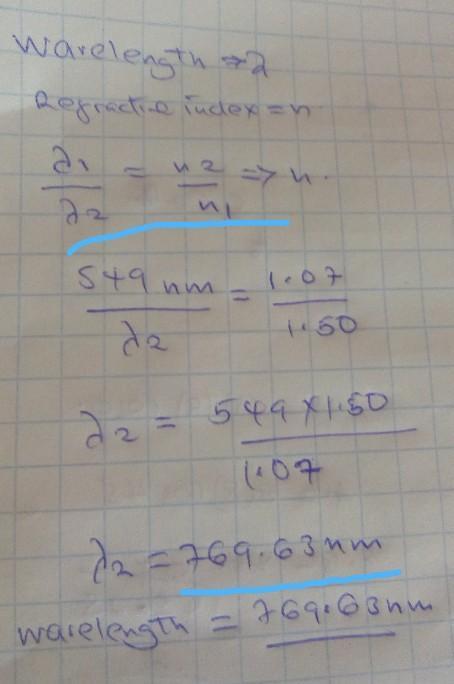 Wavelength => λ
Refractive index = n
λ1/λ2 = n2/n1 => n.
549 nm/λ2 = 1.07/1.50
λ2 = 549 x 1.50/1.07
λ2 = 769.63 nm
wavelength = 769.63nm